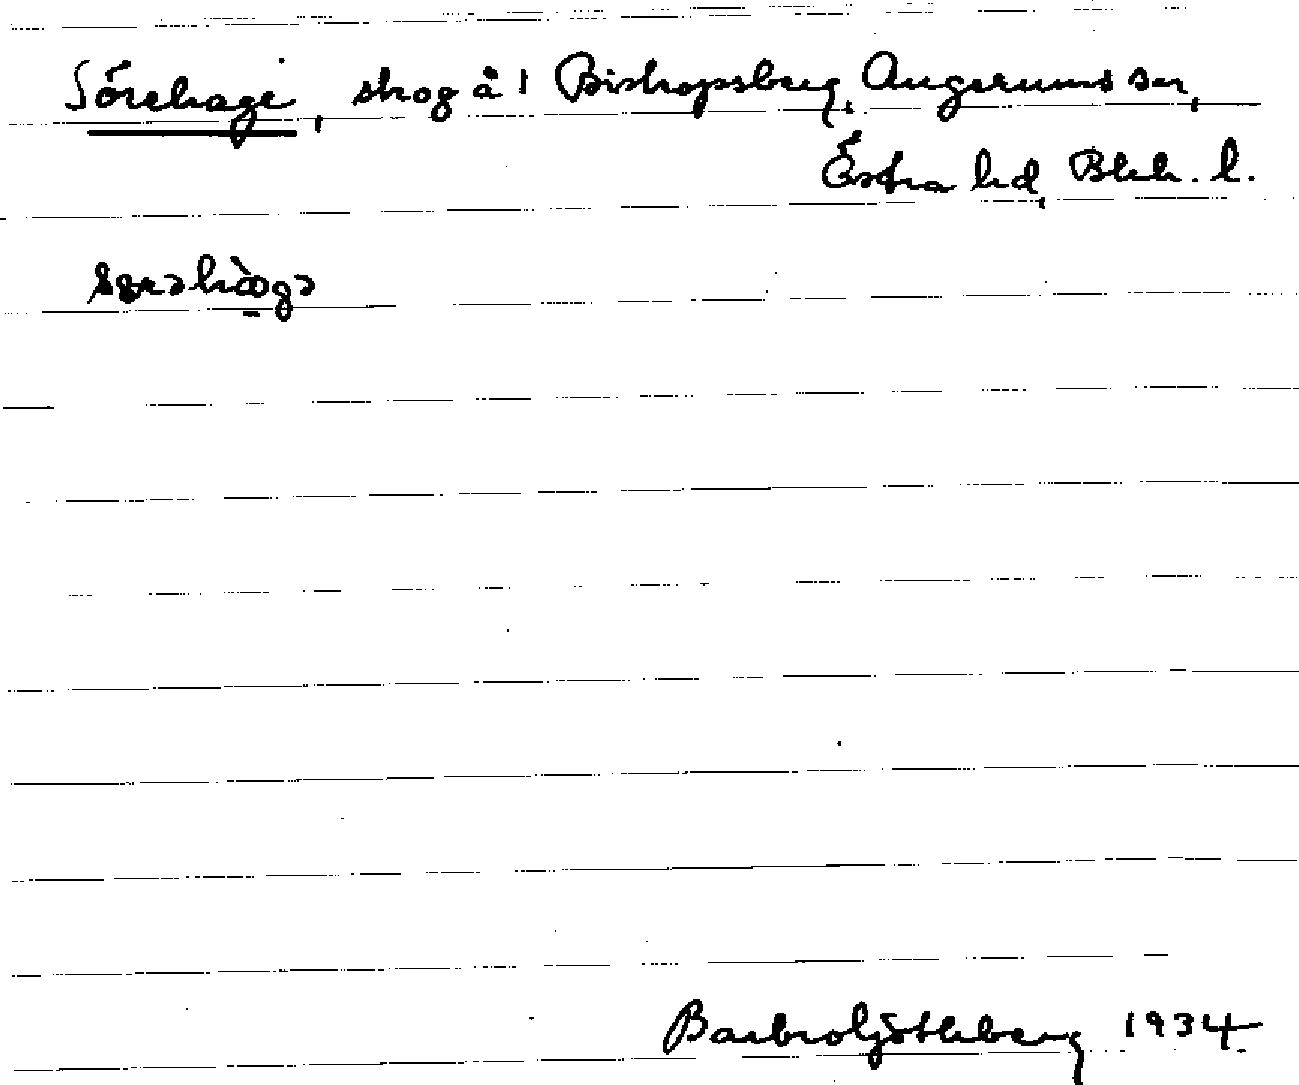 Sörehage, skog å 1 Bishopsberg, Augerums sn,
Östra hd, Blek. l.
Barbro Götlebeng 1934